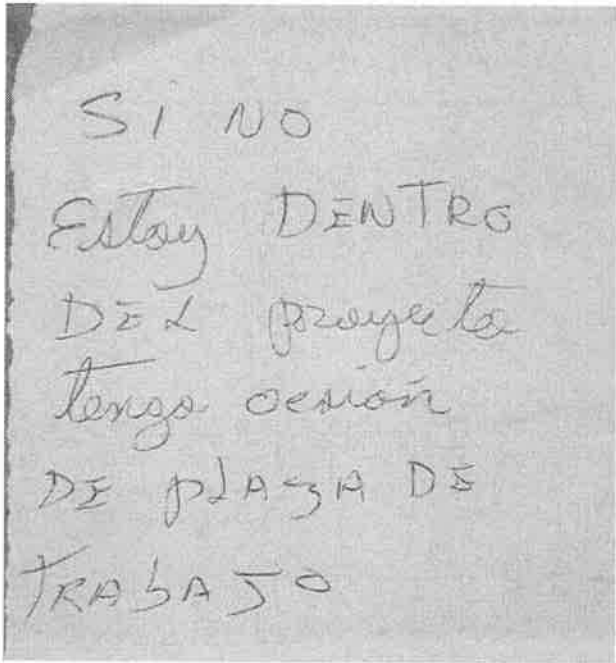 SI NO
Estoy DENTRO
DEL proyecto
tengo ocasión
DE plAzA DE
TRAbAJO